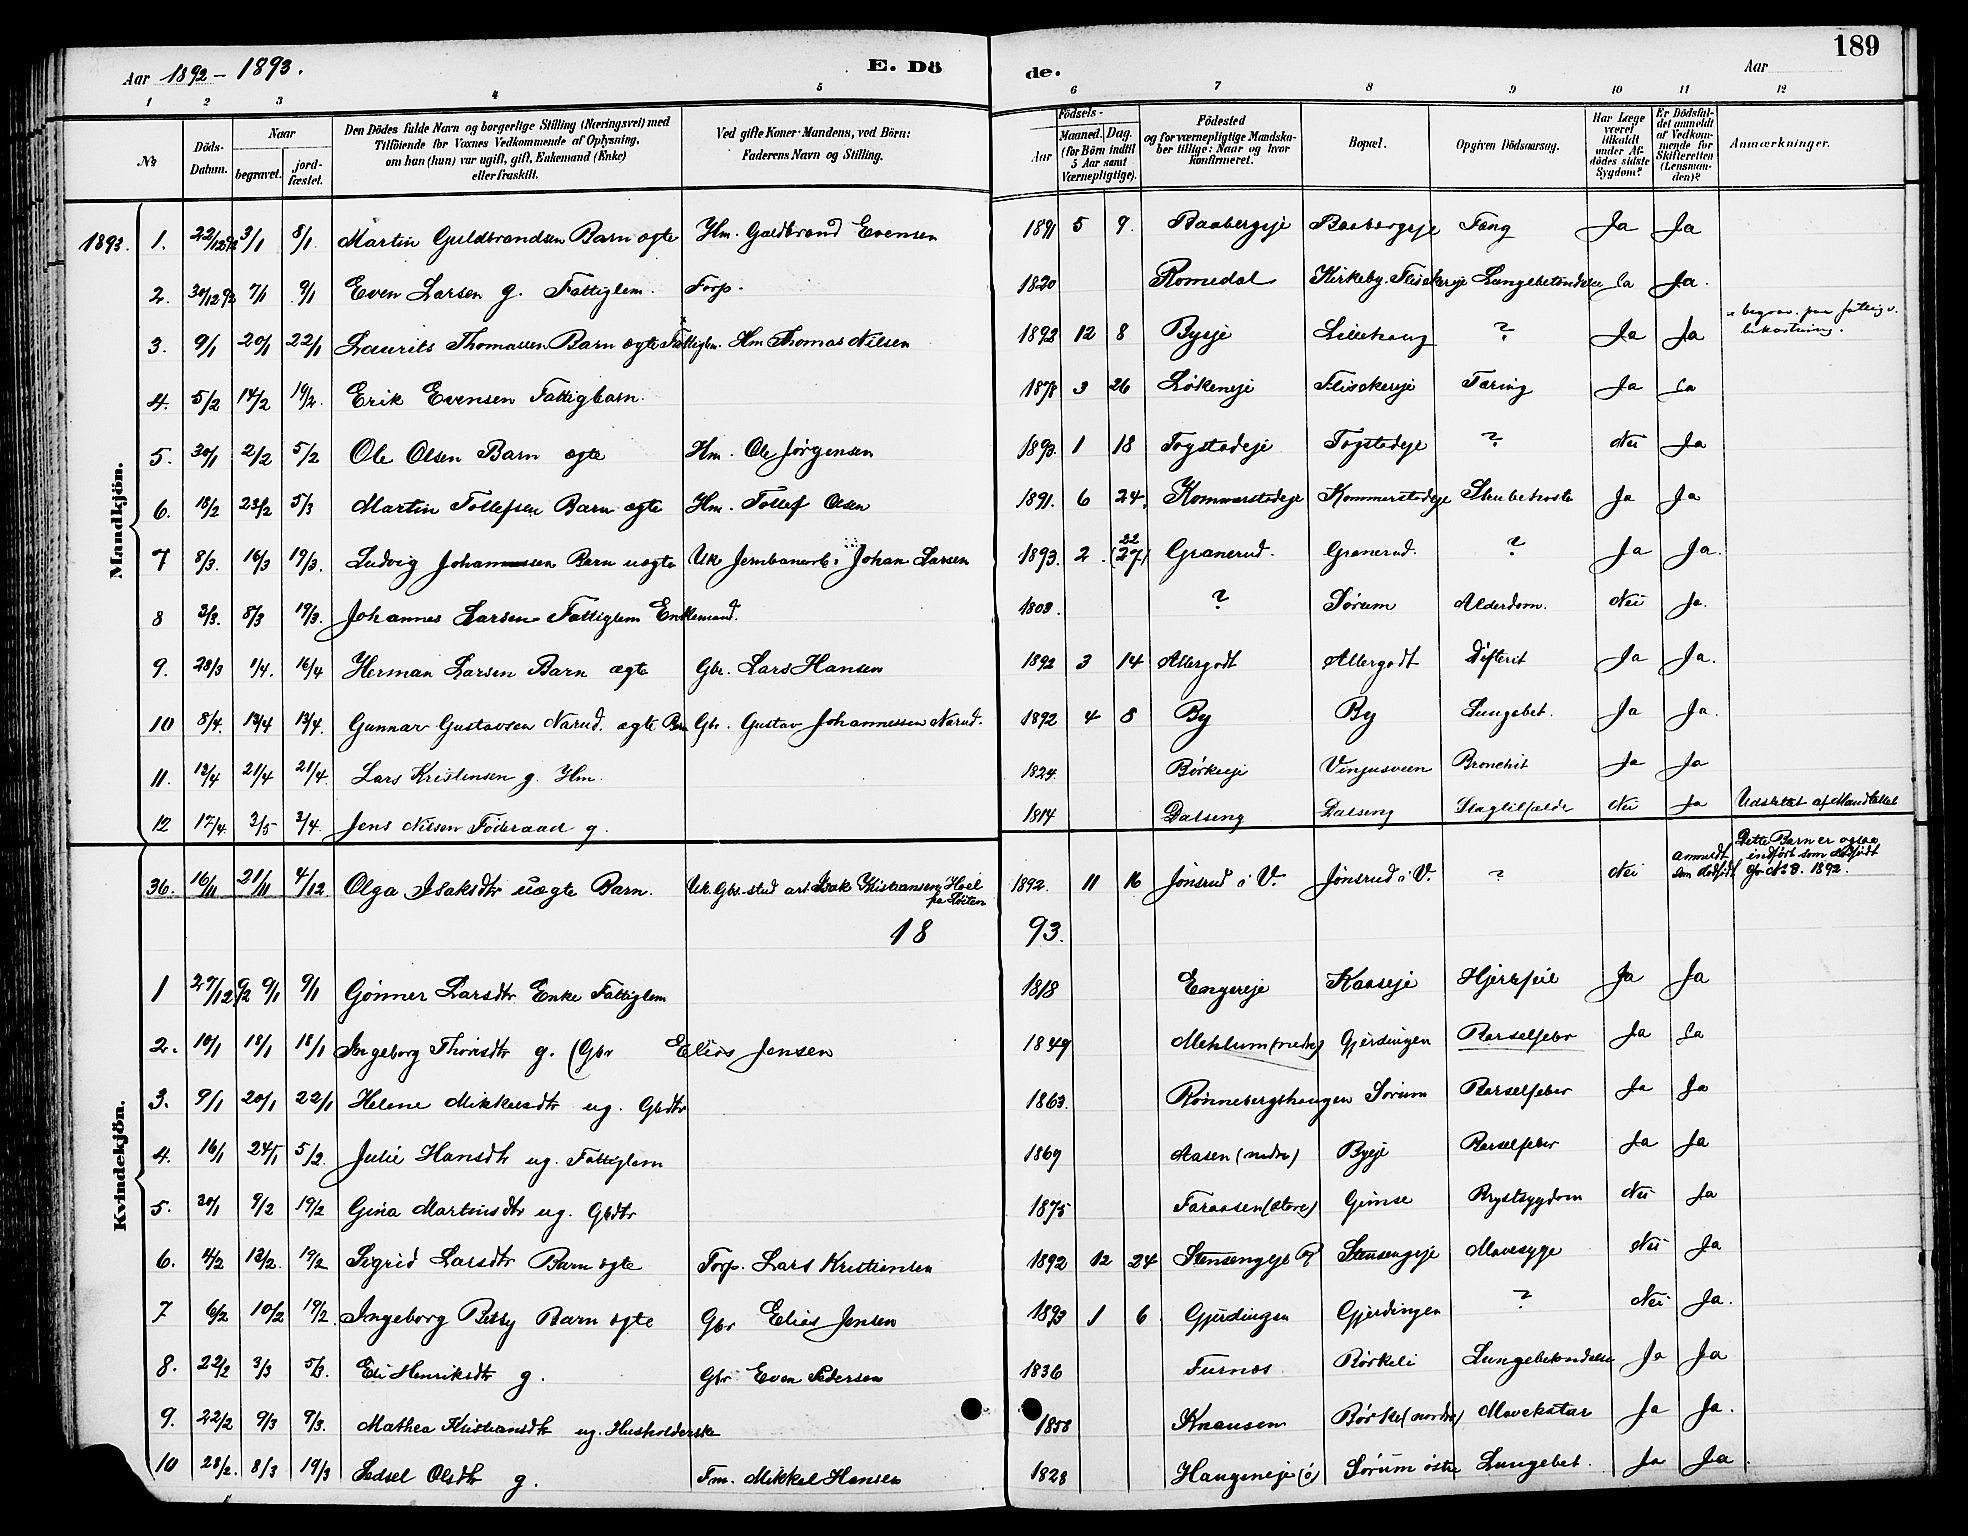 189
Aar 1892 - 1893.
E. Dö
de.
Aar
1 2 3 4 5 6 7 8 9 10 11 12
No
Döds-Datum.
Naar
begravet.
jord-fæstet.
Den Dödes fulde Navn og borgerlige Stilling (Næringsvei) med
Tilföiende for Voxnes Vedkommende af Oplysning,
om han (hun) var ugift, gift, Enkemand (Enke)
eller fraskilt.
Ved gifte Koner Mandens, ved Börn:
Faderens Navn og Stilling.
Födsels-
Aar
Maaned. Dag.
(for Börn indtil
5 Aar samt
Værnepligtige).
Födested
og for værnepligtige Mandska-
ber tillige: Naar og hvor
konfirmeret.
Bopæl.
Opgiven Dödsaarsag.
Har Læge
været
tilkaldt
under Af-
dödes sidste
Sygdom?
Er Dödsfal-
det anmeldt
af Vedkom-
mende for
Skifteretten
(Lensman-
den)?
Anmærkninger.
Mandkjön.
1893. 1. 22/12 92 3/1 8/1. Martin Guldbrandsen Barn ægte Hm. Guldbrand Evensen 1891 5 9. Baabergeje Baabergeje Tæng Ja Ja
2. 30/12 92 7/1 9/1 Even Larsen g. Fattiglem. Forp. 1820 Romedal Kirkeby. Flisakereje Lungebetændelse Ja Ja.
3. 9/1 20/1 22/1 Laurits Thomassen Barn ægte Fattiglm. Hm Thomas Nilsen 1892 12 8 Byeje Lillehaug ? Ja Ja begrav. paa fattigv. bekostning.
4. 5/2 14/2 19/2. Erik Evensen Fattigbarn. 1878 3 26 Løkeneje Flisakereje Tæring Ja Ja
5. 30/1 2/2 5/2 Ole Olsen Barn ægte Hm. Ole Jørgensen 1893. 1 18 Togstadeje Togstadeje ? Nei Ja
6. 18/2 23/2 5/3 Martin Tollefsen Barn ægte Hm. Tollef Olsen 1891. 6 24. Kommerstadeje Kommerstadeje Strubehoste Ja Ja
7 8/3. 16/3 19/3. Ludvig Johannessen Barn uægte Uk Jernbanearb. Johan Larsen 1893. 2. 22 (27) Granerud. Granerud. ? Ja Ja.
8 3/3. 8/3 19/3. Johannes Larsen Fattiglem Enkemand. 1803. ? Sørum Alderdom. Nei Ja.
9. 28/3 1/4. 16/4 Herman Larsen Barn ægte Gbr. Lars Hansen 1892 3 14 Allergodt Allergodt Difterit Ja Ja.
10 8/4. 13/4 13/4. Gunnar Gustavsen Narud. ægte Barn Gbr. Gustav Johannessen Narud. 1892 4 8 By By Lungebet. Ja Ja.
11. 13/4 21/4 21/4. Lars Kristensen g. Hm. 1824. Børkeeje Vingusveen Bronchit Ja Ja
12 17/4. 3/5 3/4. Jens Nilsen Föderaad g. 1814 Dalseng Dalseng Slagtilfælde Nei Ja Udslettet af Mandtallet
36. 16/11 21/11 4/12 Olga Isaksdtr uægte Barn. Uk. Gbr. Isak Kristiansen Hoel paa Löiten 1892. 11 16 Jønsrud i V. Jønsrud i V. ? Nei anmeldt som dødfødt Dette Barn er ogsaa indført som dødfødt No 3. 1892.
18 93.
Kvindekjön.
1 27/12 92 9/1 9/1 Gønner Larsdtr Enke Fattiglem 1818 Engereje Kaaseje Hjertefeil Ja Ja
2. 10/1 18/1 18/1 Ingeborg Thorsdtr g. (Gbr Elias Jensen 1849 Mehlum (nedre) Gjerdingen Barselfeber Ja Ja
3. 9/1 20/1 22/1 Helene Mikkelsdtr ug. Gbdtr 1863. Rønnebergshaugen Sørum Barselfeber Ja Ja
4. 16/1 24/1 5/2. Julie Hansdtr ug. Fattiglem 1869 Aasen (nedre) Byeje Barselfeber Ja Ja
5. 30/1 9/2 19/2 Gina Martinsdtr ug. Gbdtr 1875 Faraasen (store) Gimse Brystsygdom Nei Ja
6. 4/2 13/2. 19/2 Sigrid Larsdtr Barn ægte Forp. Lars Kristiansen 1892 12 24 Stensengeje Stensengeje Mavesyge Nei Ja
7 6/2 10/2 19/2. Ingeborg Betsy Barn ægte Gbr Elias Jensen 1893 1 6 Gjerdingen Gjerdingen ? Nei Ja.
8. 22/2 3/3 5/3. Eli Henriksdtr g. Gbr Even Pedersen 1836 Furnæs Børkeli Lungebetændelse Ja Ja
9. 22/2 9/3 9/3. Mathea Kristiansdtr ug. Husholderske 1858 Knausen Børke (nordre) Mavekatar Ja Ja.
10 28/2. 8/3 19/3 Sedsel Olsdtr g. Fm. Mikkel Hansen 1828 Haugeneje (ø) Sørum østre Lungebet. Ja Ja.